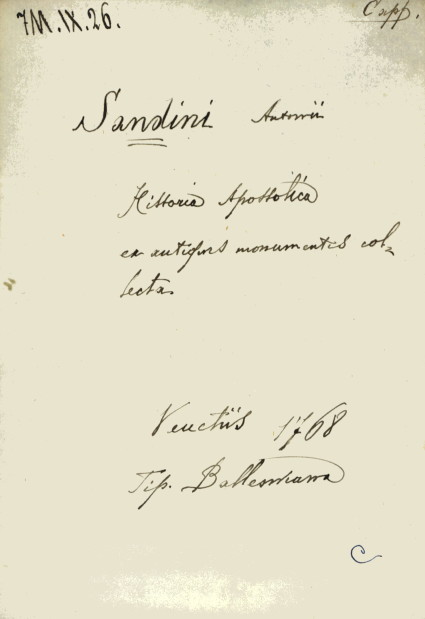 7M.IX.26.
Capp.
Sandini Antonii
Historia Apostolica
ex antiquis monumentis col-
lecta.
Venetiis 1768
Tip. Balleoniana
C